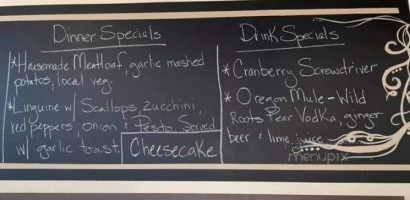 Dinner Specials
*Housemade Meatloaf, garlic mashed
potatos, local veg.
*Linguine w/ Scallops, Zucchini,
red peppers, onion & Pesto. Served
w/ garlic toast.
Cheesecake
Drink Specials
* Cranberry Screwdriver
* Oregon Mule - Wild
Roots Pear Vodka, ginger
beer & lime juice
menupix